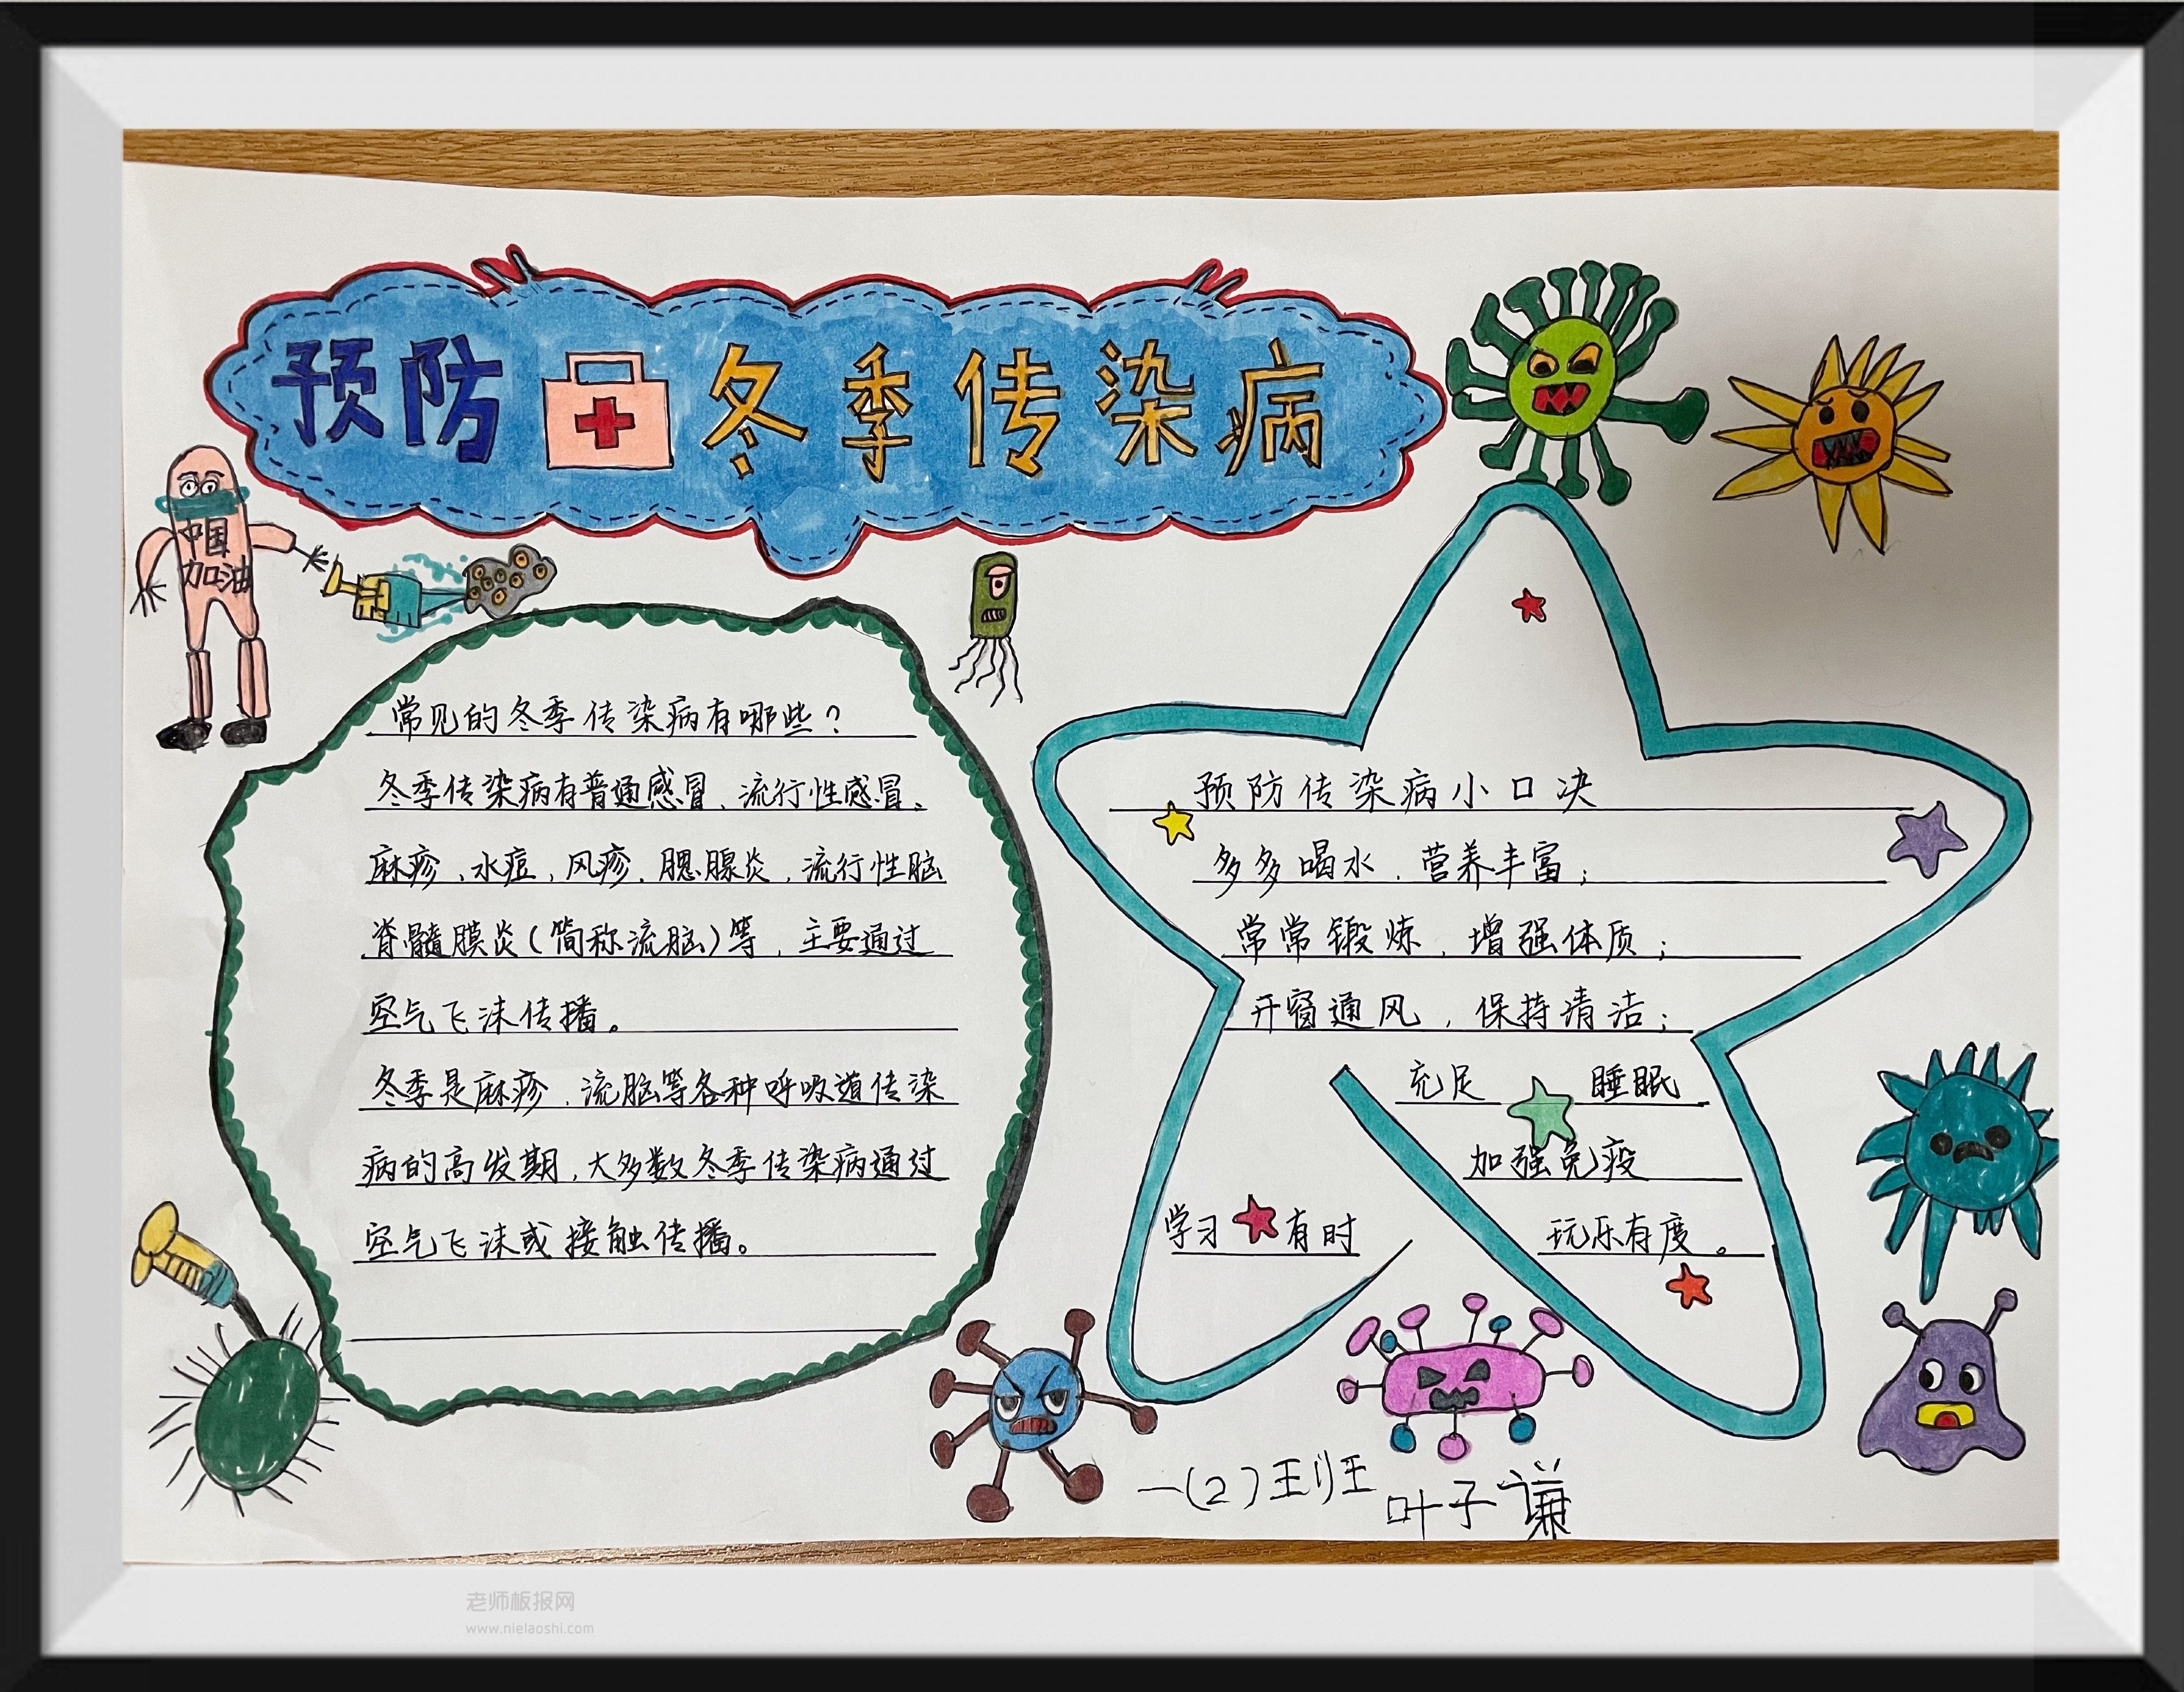 预防冬季传染病
中国
加油
常见的冬季传染病有哪些？
冬季传染病有普通感冒、流行性感冒、
麻疹、水痘、风疹、腮腺炎、流行性脑
脊髓膜炎(简称流脑)等，主要通过
空气飞沫传播。
冬季是麻疹、流脑等各种呼吸道传染
病的高发期，大多数冬季传染病通过
空气飞沫或接触传播。
预防传染病小口决
多多喝水，营养丰富；
常常锻炼，增强体质；
开窗通风，保持清洁；
充足 睡眠
加强免疫
学习 有时 玩乐有度。
一(2)班 叶子谦
老师板报网
www.nielaoshi.com